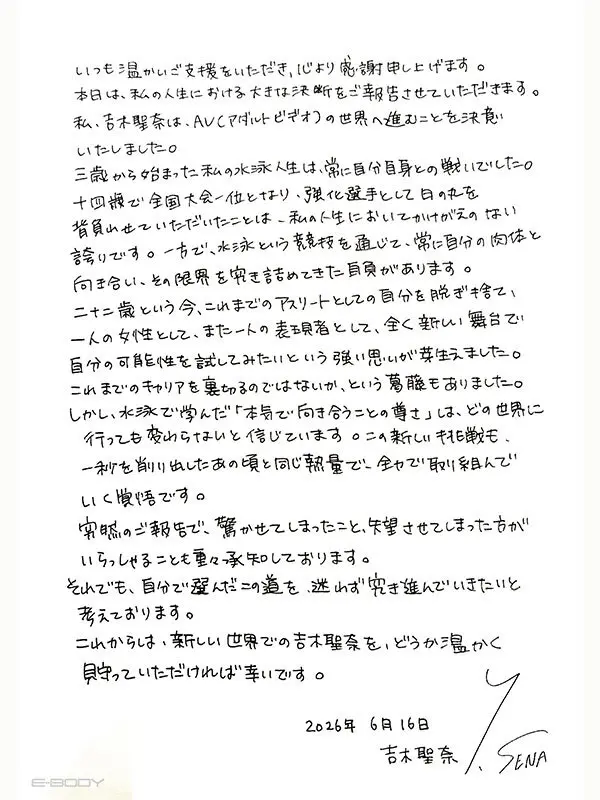 いつも温かいご支援をいただき、心より感謝申し上げます。
本日は、私の人生における大きな決断をご報告させていただきます。
私、吉木聖奈は、AV(アダルトビデオ)の世界へ進むことを決意
いたしました。
三歳から始まった私の水泳人生は、常に自分自身との戦いでした。
十四歳で全国大会一位となり、強化選手として日の丸を
背負わせていただいたことは、私の人生においてかけがえのない
誇りです。一方で、水泳という競技を通じて、常に自分の肉体と
向き合い、その限界を突き詰めてきた自負があります。
二十二歳という今、これまでのアスリートとしての自分を脱ぎ捨て、
一人の女性として、また一人の表現者として、全く新しい舞台で
自分の可能性を試してみたいという強い思いが芽生えました。
これまでのキャリアを裏切るのではないか、という葛藤もありました。
しかし、水泳で学んだ「本気で向き合うことの尊さ」は、どの世界に
行っても変わらないと信じています。この新しい挑戦も、
一秒を削り出したあの頃と同じ熱量で、全力で取り組んで
いく覚悟です。
突然のご報告で、驚かせてしまったこと、失望させてしまった方が
いらっしゃることも重々承知しております。
それでも、自分で選んだこの道を、迷わず突き進んでいきたいと
考えております。
これからは、新しい世界での吉木聖奈を、どうか温かく
見守っていただければ幸いです。
2026年 6月16日
吉木聖奈 Y.SENA
E-BODY